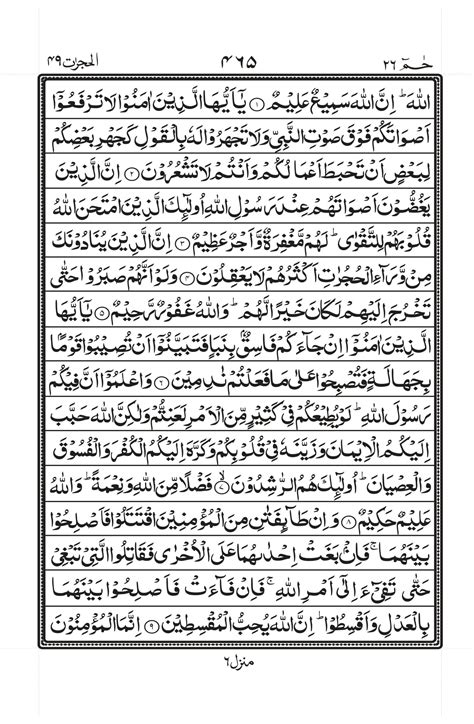 حٰمٓ ٢٦ ۴۶۵ الحجرٰت ۴۹
اللّٰهَ ؕ اِنَّ اللّٰهَ سَمِيْعٌ عَلِيْمٌ ﴿۱﴾ يٰۤاَيُّهَا الَّذِيْنَ اٰمَنُوْا لَا تَرْفَعُوْۤا
اَصْوَاتَكُمْ فَوْقَ صَوْتِ النَّبِيِّ وَلَا تَجْهَرُوْا لَهٗ بِالْقَوْلِ كَجَهْرِ بَعْضِكُمْ
لِبَعْضٍ اَنْ تَحْبَطَ اَعْمَالُكُمْ وَاَنْتُمْ لَا تَشْعُرُوْنَ ﴿۲﴾ اِنَّ الَّذِيْنَ
يَغُضُّوْنَ اَصْوَاتَهُمْ عِنْدَ رَسُوْلِ اللّٰهِ اُولٰٓئِكَ الَّذِيْنَ امْتَحَنَ اللّٰهُ
قُلُوْبَهُمْ لِلتَّقْوٰى ؕ لَهُمْ مَّغْفِرَةٌ وَّاَجْرٌ عَظِيْمٌ ﴿۳﴾ اِنَّ الَّذِيْنَ يُنَادُوْنَكَ
مِنْ وَّرَآءِ الْحُجُرٰتِ اَكْثَرُهُمْ لَا يَعْقِلُوْنَ ﴿۴﴾ وَلَوْ اَنَّهُمْ صَبَرُوْا حَتّٰى
تَخْرُجَ اِلَيْهِمْ لَكَانَ خَيْرًا لَّهُمْ ؕ وَاللّٰهُ غَفُوْرٌ رَّحِيْمٌ ﴿۵﴾ يٰۤاَيُّهَا
الَّذِيْنَ اٰمَنُوْۤا اِنْ جَآءَكُمْ فَاسِقٌۢ بِنَبَاٍ فَتَبَيَّنُوْۤا اَنْ تُصِيْبُوْا قَوْمًۢا
بِجَهَالَةٍ فَتُصْبِحُوْا عَلٰى مَا فَعَلْتُمْ نٰدِمِيْنَ ﴿۶﴾ وَاعْلَمُوْۤا اَنَّ فِيْكُمْ
رَسُوْلَ اللّٰهِ ؕ لَوْ يُطِيْعُكُمْ فِيْ كَثِيْرٍ مِّنَ الْاَمْرِ لَعَنِتُّمْ وَلٰكِنَّ اللّٰهَ حَبَّبَ
اِلَيْكُمُ الْاِيْمَانَ وَزَيَّنَهٗ فِيْ قُلُوْبِكُمْ وَكَرَّهَ اِلَيْكُمُ الْكُفْرَ وَالْفُسُوْقَ
وَالْعِصْيَانَ ؕ اُولٰٓئِكَ هُمُ الرّٰشِدُوْنَ ﴿۷﴾ فَضْلًا مِّنَ اللّٰهِ وَنِعْمَةً ؕ وَاللّٰهُ
عَلِيْمٌ حَكِيْمٌ ﴿۸﴾ وَاِنْ طَآئِفَتٰنِ مِنَ الْمُؤْمِنِيْنَ اقْتَتَلُوْا فَاَصْلِحُوْا
بَيْنَهُمَا ۚ فَاِنْۢ بَغَتْ اِحْدٰىهُمَا عَلَى الْاُخْرٰى فَقَاتِلُوا الَّتِيْ تَبْغِيْ
حَتّٰى تَفِيْٓءَ اِلٰۤى اَمْرِ اللّٰهِ ۚ فَاِنْ فَآءَتْ فَاَصْلِحُوْا بَيْنَهُمَا
بِالْعَدْلِ وَاَقْسِطُوْا ؕ اِنَّ اللّٰهَ يُحِبُّ الْمُقْسِطِيْنَ ﴿۹﴾ اِنَّمَا الْمُؤْمِنُوْنَ
منزل ٦